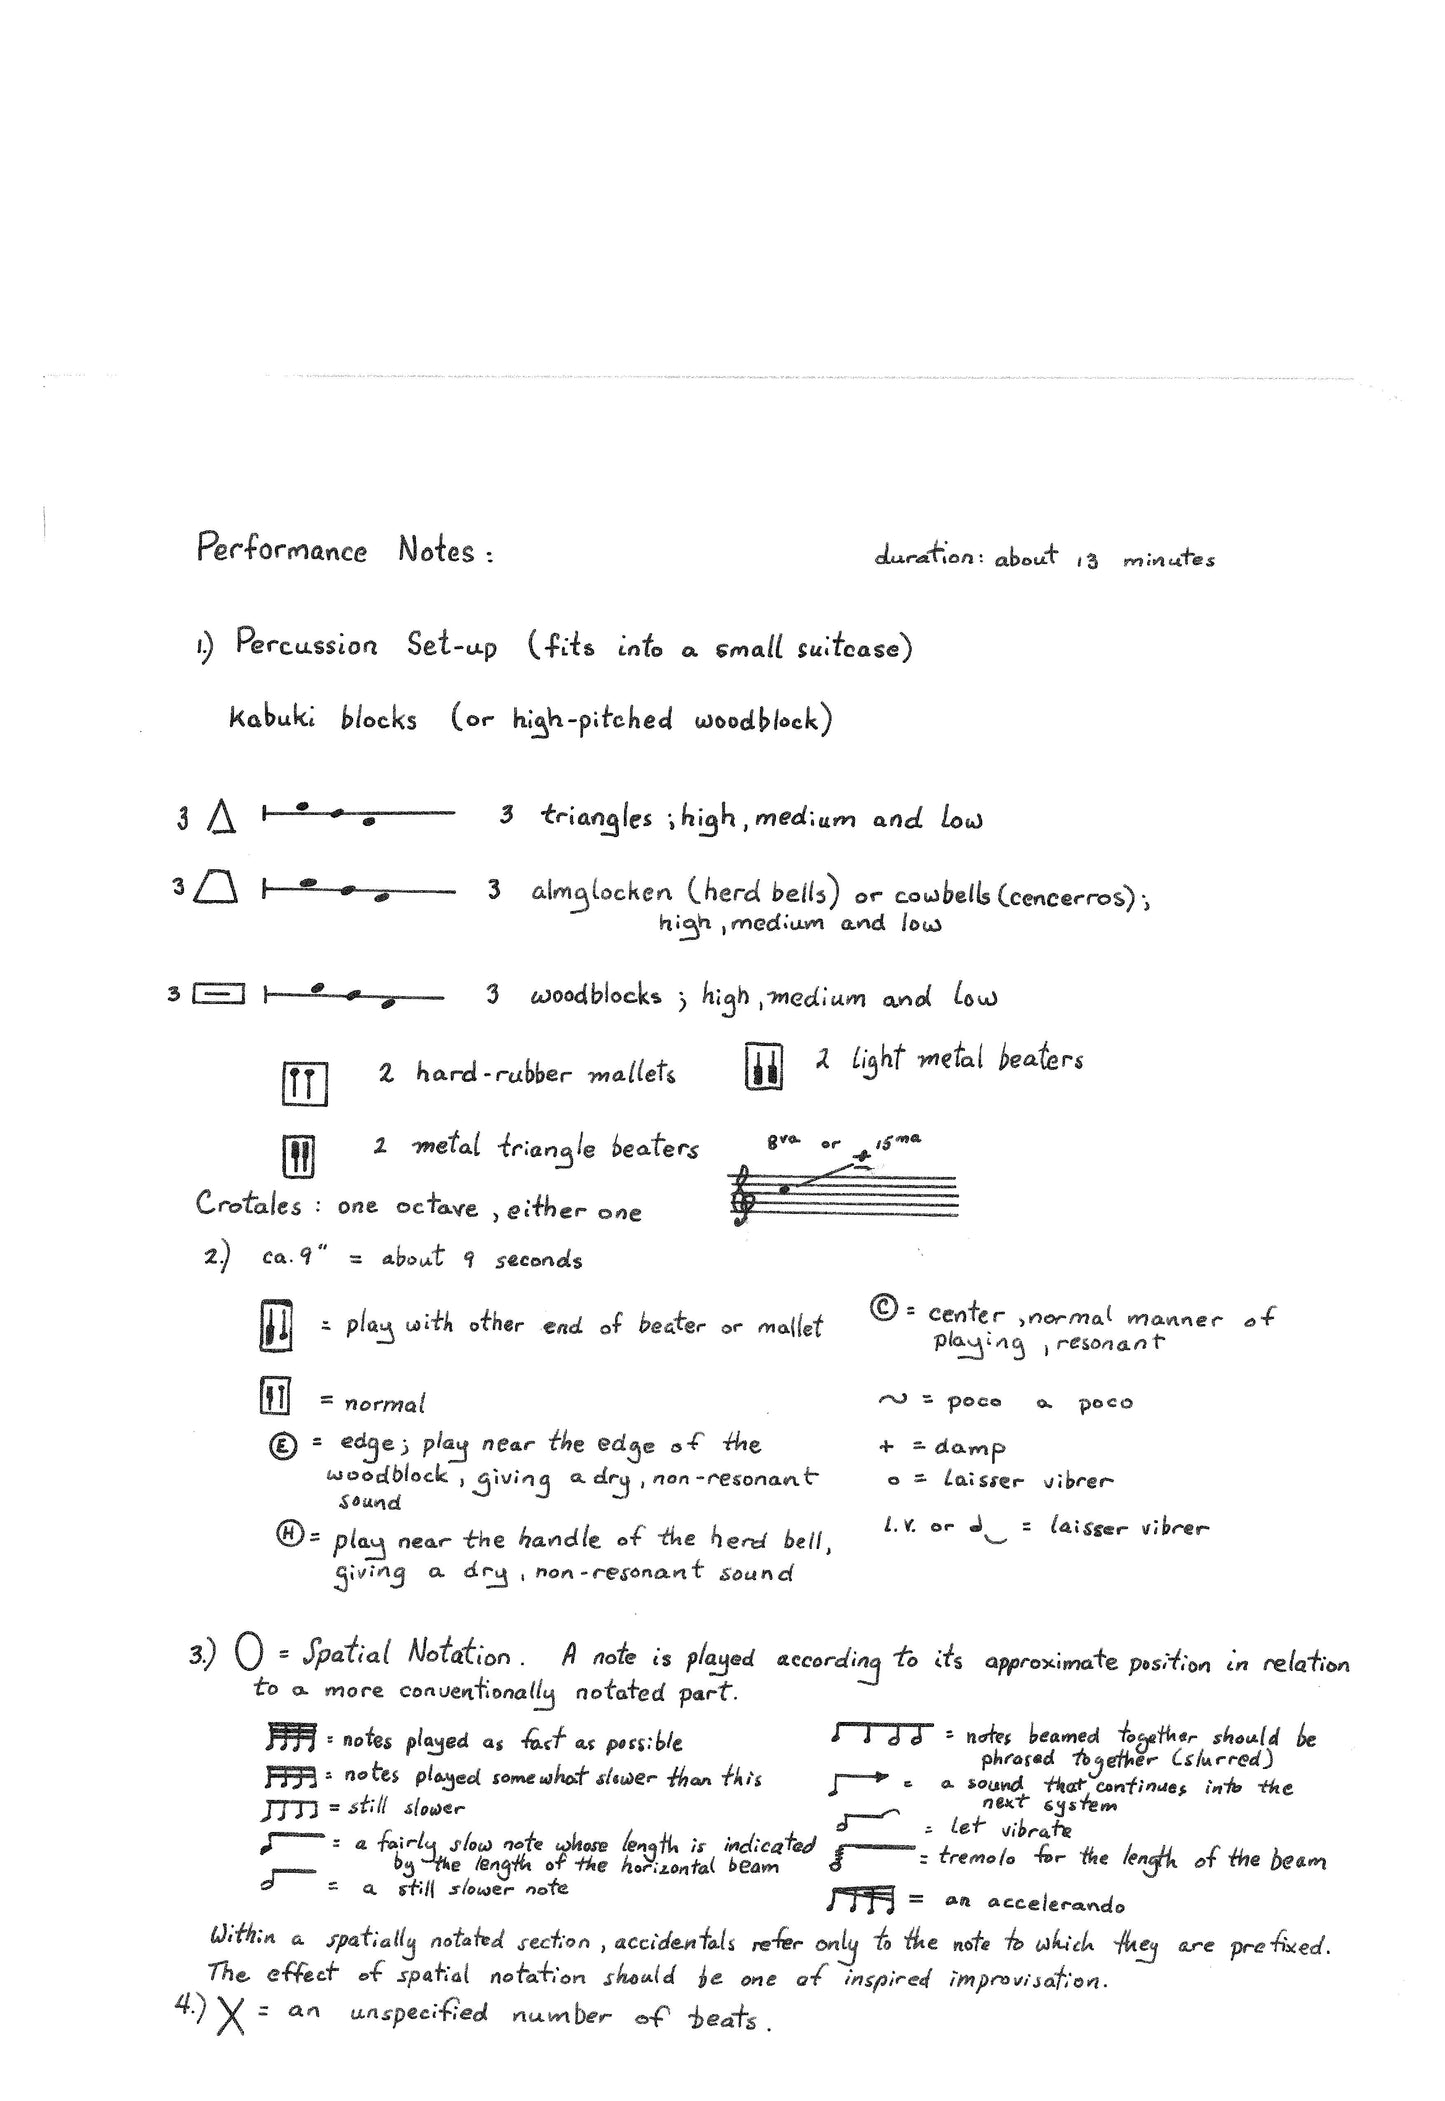 Performance Notes:
duration: about 13 minutes
1.) Percussion Set-up (fits into a small suitcase)
Kabuki blocks (or high-pitched woodblock)
3 △ 3 triangles ; high, medium and low
3 3 almglocken (herd bells) or cowbells (cencerros);
high, medium and low
3 3 woodblocks ; high, medium and low
2 hard-rubber mallets
2 light metal beaters
2 metal triangle beaters
8va or 15ma
Crotales : one octave, either one
2.) ca. 9" = about 9 seconds
= play with other end of beater or mallet
= normal
Ⓔ = edge; play near the edge of the
woodblock, giving a dry, non-resonant
sound
Ⓗ = play near the handle of the herd bell,
giving a dry, non-resonant sound
Ⓒ = center, normal manner of
playing, resonant
~ = poco a poco
+ = damp
o = laisser vibrer
l.v. or = laisser vibrer
3.) O = Spatial Notation. A note is played according to its approximate position in relation
to a more conventionally notated part.
= notes played as fast as possible
= notes played somewhat slower than this
= still slower
= a fairly slow note whose length is indicated
by the length of the horizontal beam
= a still slower note
= notes beamed together should be
phrased together (slurred)
= a sound that continues into the
next system
= let vibrate
= tremolo for the length of the beam
= an accelerando
Within a spatially notated section, accidentals refer only to the note to which they are prefixed.
The effect of spatial notation should be one of inspired improvisation.
4.) X = an unspecified number of beats.